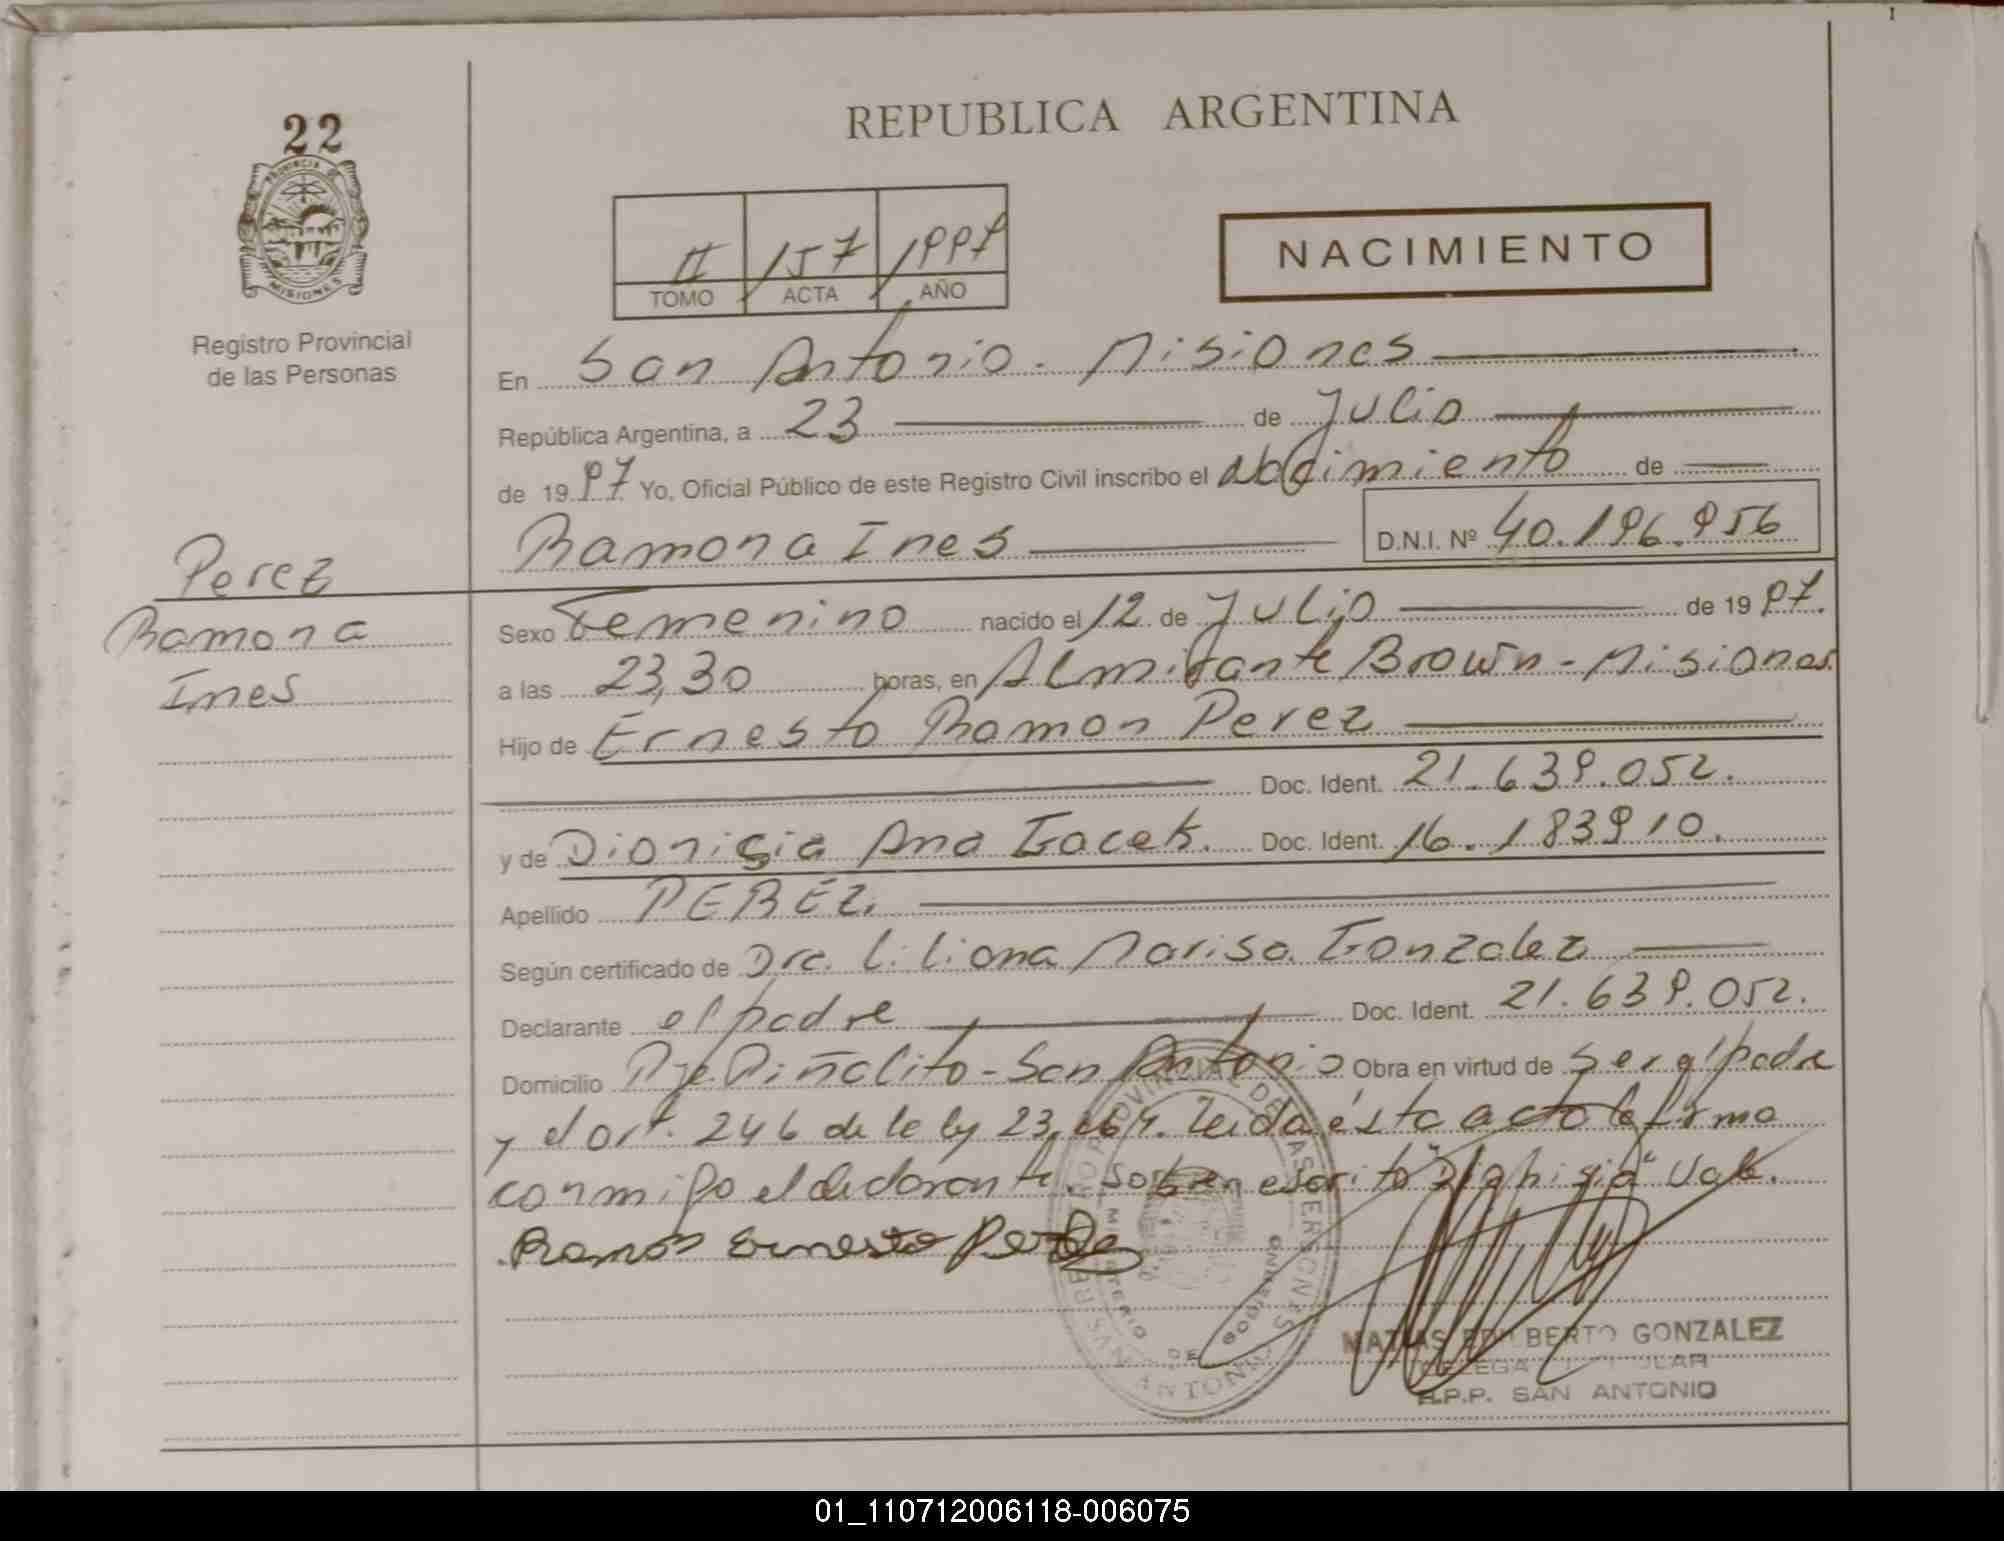 I
REPUBLICA ARGENTINA
22
PROVINCIA DE
MISIONES
Registro Provincial
de las Personas
II 157 1997
TOMO ACTA AÑO
NACIMIENTO
En San Antonio - Misiones
República Argentina, a 23 de Julio
de 1997 Yo, Oficial Público de este Registro Civil inscribo el Nacimiento de
Ramona Ines D.N.I. Nº 40.196.956
Perez
Ramona
Ines
Sexo Femenino nacido el 12 de Julio de 1997.
a las 23,30 horas, en Almirante Brown - Misiones.
Hijo de Ernesto Ramon Perez
Doc. Ident. 21.639.052.
y de Dionisia Ana Gacek. Doc. Ident. 16.183910.
Apellido PEREZ.
Según certificado de Dra. Liliana Marisa Gonzalez
Declarante el padre Doc. Ident. 21.639.052.
Domicilio Pje Piñalito - San Antonio Obra en virtud de ser el padre
y el art. 246 de la ley 23.264. Leida ésta acta la firma
conmigo el declarante. Sobre escrito "Dionisia" Vale.
Ramon Ernesto Perez
SAN ANTONIO
MINISTERIO DE GOBIERNO
MATIAS EDILBERTO GONZALEZ
R.P.P. SAN ANTONIO
01_110712006118-006075